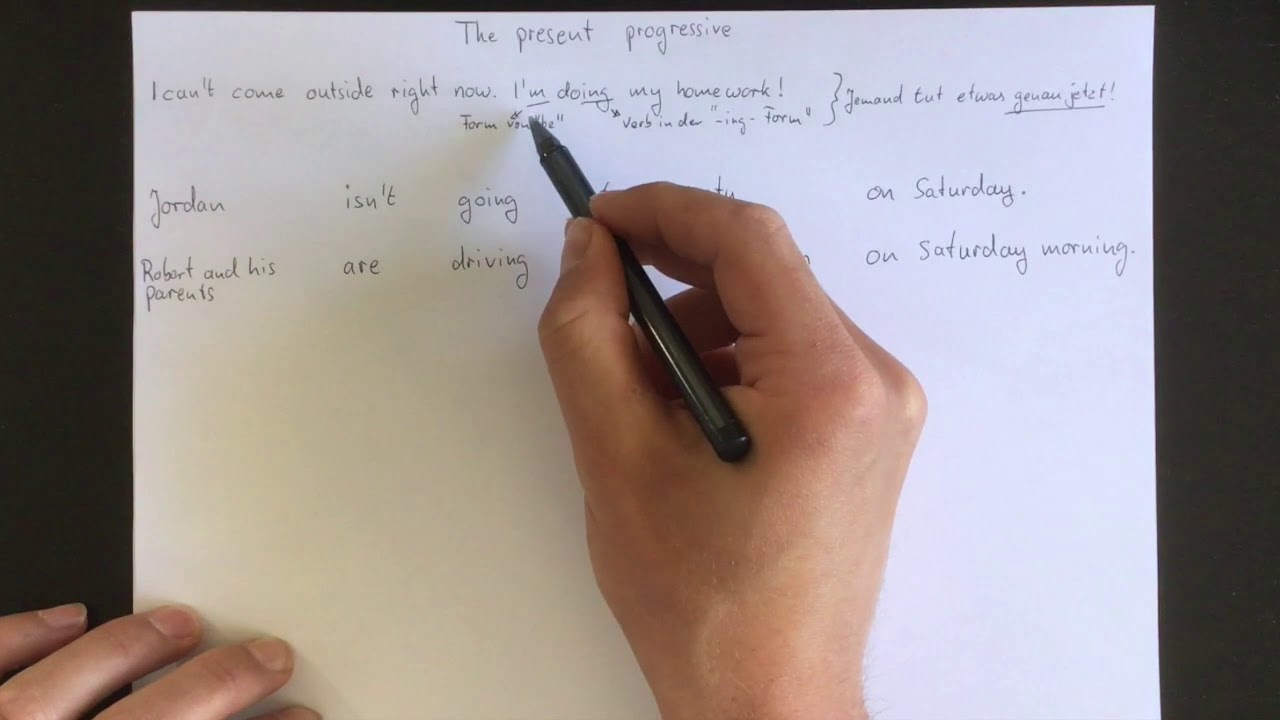 The present progressive
I can't come outside right now. I'm doing my homework! Jemand tut etwas genau jetzt!
Form von "be" Verb in der "-ing-Form"
Jordan isn't going on Saturday.
Robert and his are driving on Saturday morning.
parents